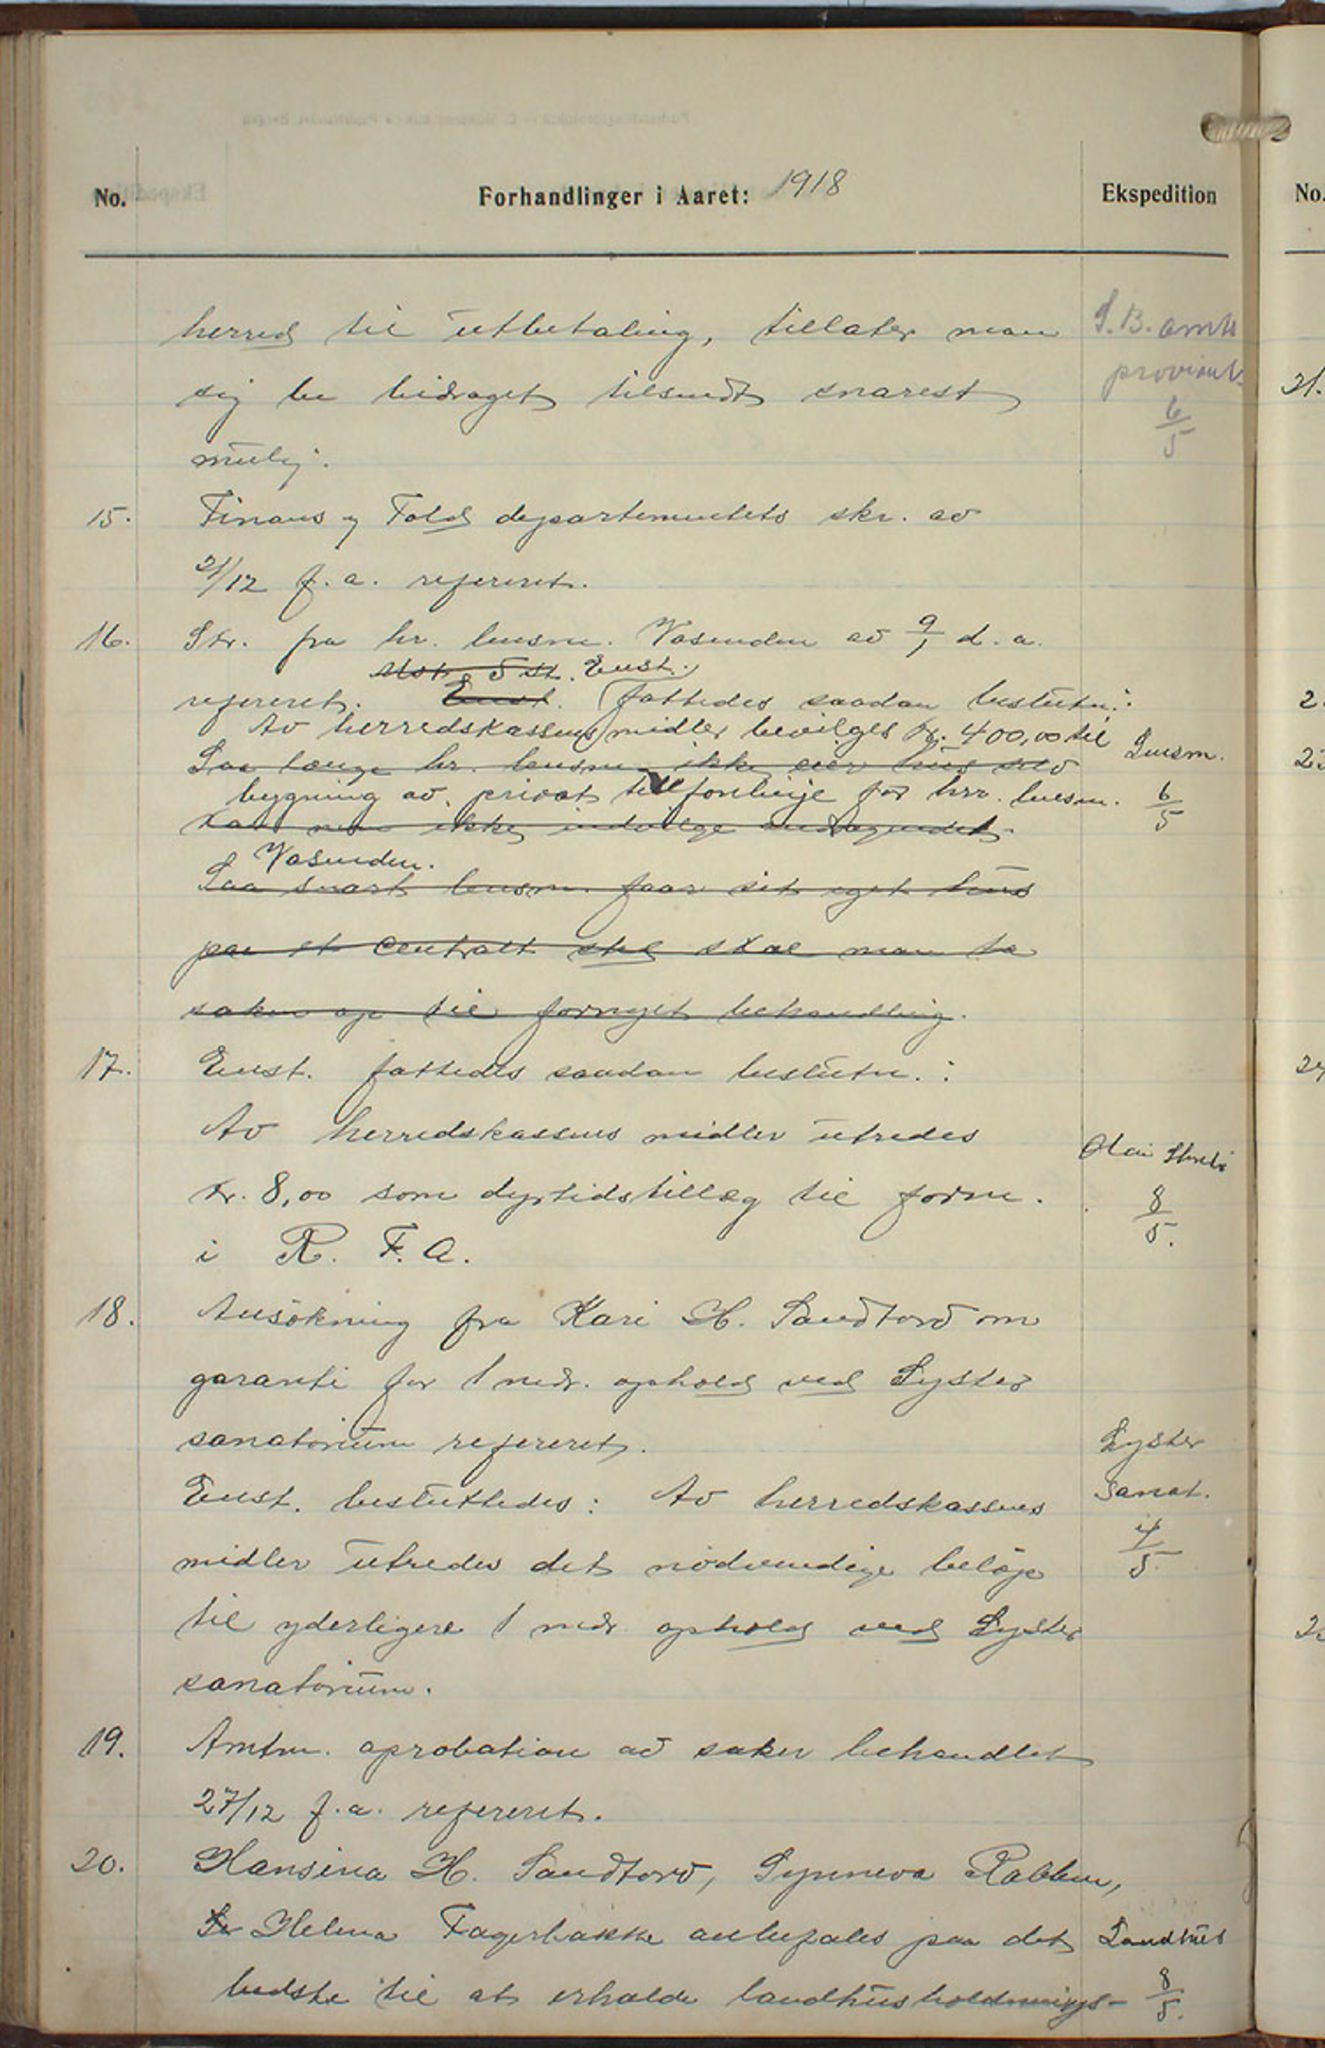 No. Forhandlinger i Aaret: 1918 Ekspedition
herred til utbetaling, tillater man
sig be bidraget tilsendt snarest
mulig.
S. B. amts
proviant.
6/5
15. Finans og Told departementets skr. av
21/12 f. a. referert.
16. Skr. fra hr. lensm. Vasenden av 9/1 d. a.
Enst.
refereret. Enst. fattedes saadan beslutn.:
Av herredskassens midler bevilges kr. 400,00 til
Saa længe hr. lensm. ikke eier hus selv
bygning av privat telefonlinje for hr. lensm.
kan man ikke indvilge andragendet.
Vasenden.
Saa snart lensm. faar sit eget hus
paa et centralt sted skal man ta
saken op til fornyet behandling.
Lensm.
6/5
17. Enst. fattedes saadan beslutn.:
Av herredskassens midler utredes
kr. 8,00 som dyrtidstillæg til form.
i R. F. A.
Olai
8/5.
18. Ansökning fra Kari H. Sandtorv om
garanti for 1 mdr. ophold ved Lyster
sanatorium refereret.
Enst. besluttedes: Av herredskassens
midler utredes det nödvendige belöp
til yderligere 1 mdr. ophold ved Lyster
sanatorium.
Lyster
Sanat.
4/5
19. Amtm. aprobation av saker behandlet
27/12 f. a. refereret.
20. Hansina H. Sandtorv, Synneva Rabben,
Helena Fagerbakke anbefales paa det
bedste til at erholde landhusholdnings-
Landhus
8/5.
No.
21.